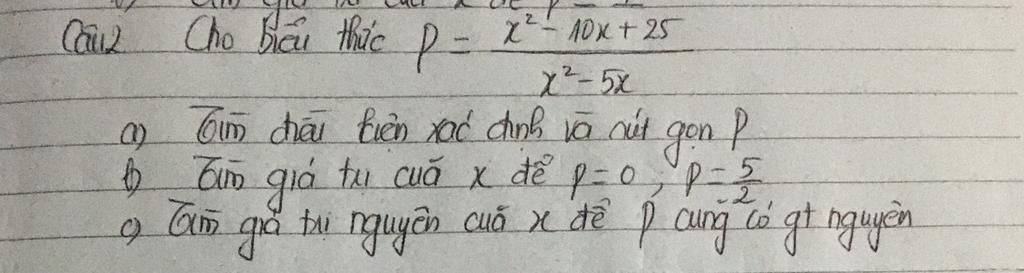 Câu2 Cho biểu thức P = x² - 10x + 25 / x² - 5x
a) Tìm điều kiện xác định và rút gọn P
b) Tìm giá trị của x để P = 0 ; P = 5/2
c) Tìm giá trị nguyên của x để P cũng có gt nguyên